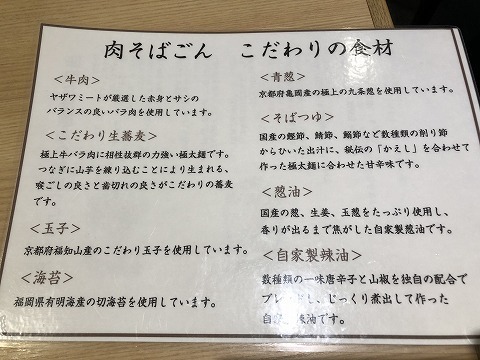 肉そばごん こだわりの食材
<牛肉>
ヤザワミートが厳選した赤身とサシの
バランスの良いバラ肉を使用しています。
<こだわり生蕎麦>
極上牛バラ肉に相性抜群の力強い極太麺です。
つなぎに山芋を練り込むことにより生まれる、
喉ごしの良さと歯切れの良さがこだわりの蕎麦
です。
<玉子>
京都府福知山産のこだわり玉子を使用しています。
<海苔>
福岡県有明海産の切海苔を使用しています。
<青葱>
京都府亀岡産の極上の九条葱を使用しています。
<そばつゆ>
国産の鰹節、鯖節、鰯節など数種類の削り節
からひいた出汁に、秘伝の「かえし」を合わせて
作った極太麺に合わせた甘辛味です。
<葱油>
国産の葱、生姜、玉葱をたっぷり使用し、
香りが出るまで焦がした自家製葱油です。
<自家製辣油>
数種類の一味唐辛子と山椒を独自の配合で
ブレンドし、じっくり煮出して作った
自家製辣油です。